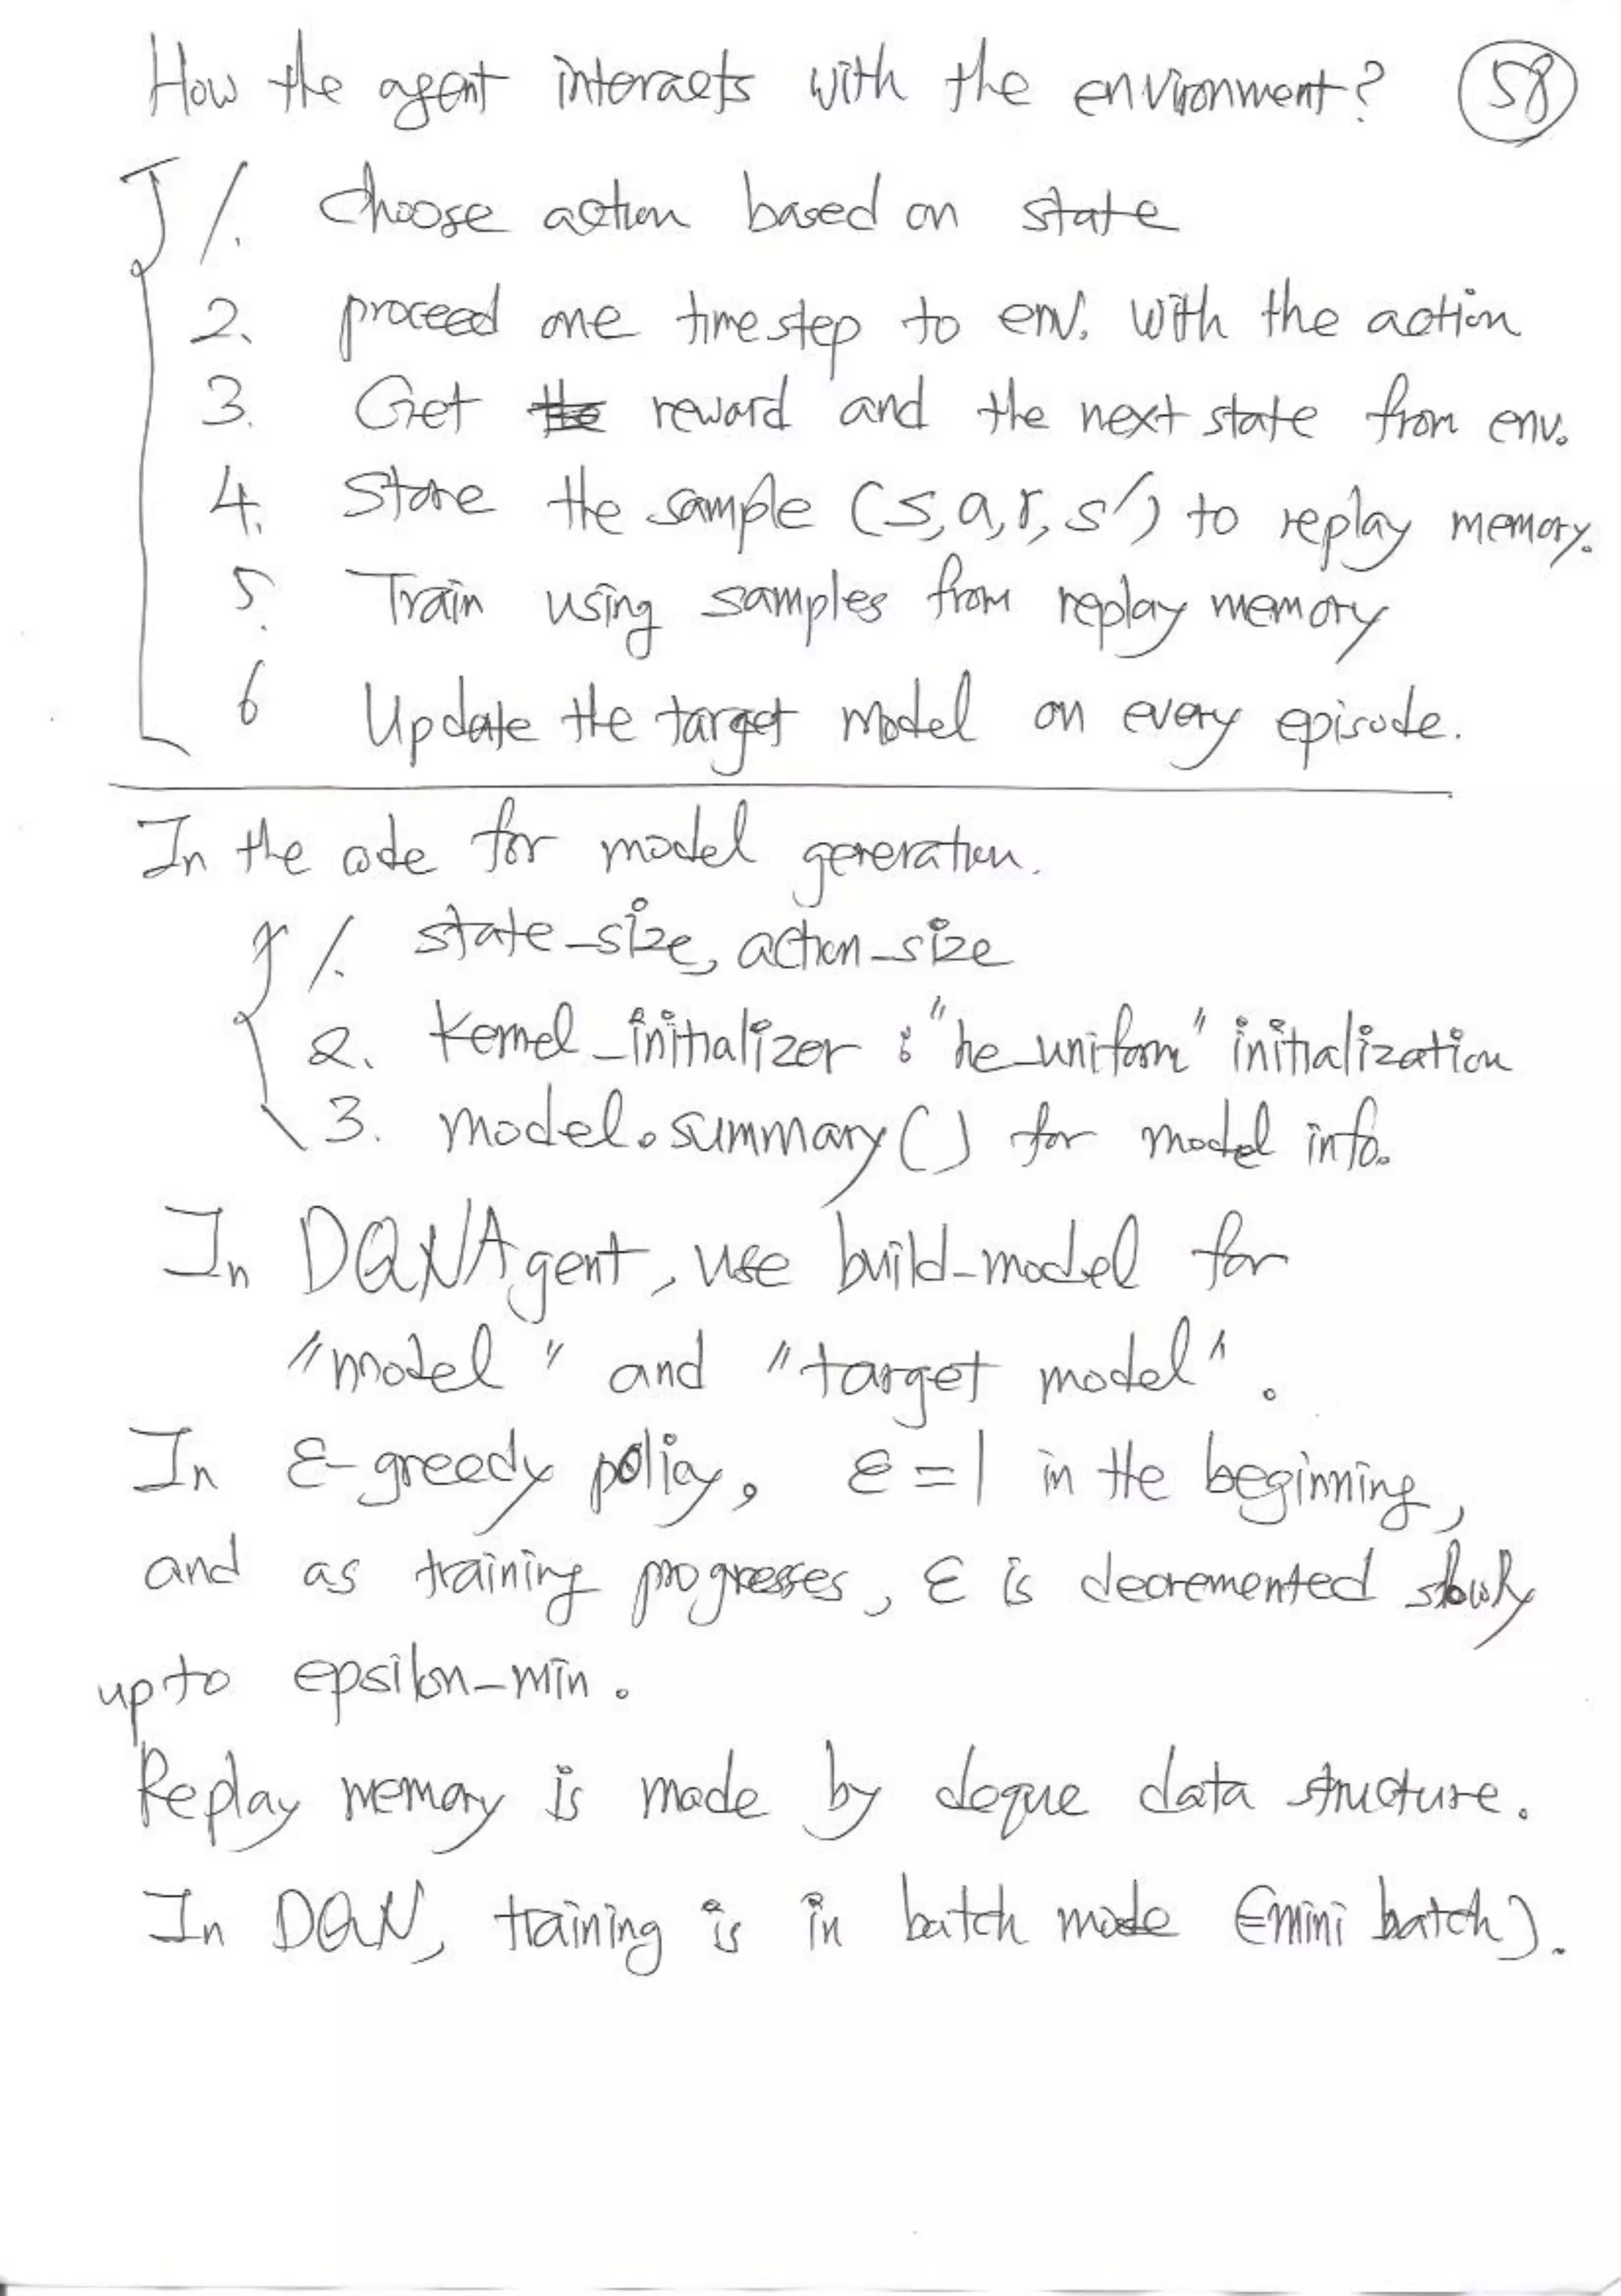 How the agent interacts with the environment? 58
1. choose action based on state
2. proceed one timestep to env. with the action
3. Get the reward and the next state from env.
4. Store the sample (s, a, r, s') to replay memory.
5. Train using samples from replay memory
6 Update the target model on every episode.
In the code for model generation.
1. state_size, action_size
2. kernel_initializer : "he_uniform" initialization
3. model.summary() for model info.
In DQNAgent, use build-model for
"model" and "target model".
In ε-greedy policy, ε=1 in the beginning,
and as training progresses, ε is decremented slowly
up to epsilon-min.
Replay memory is made by deque data structure.
In DQN, training is in batch mode (mini batch).